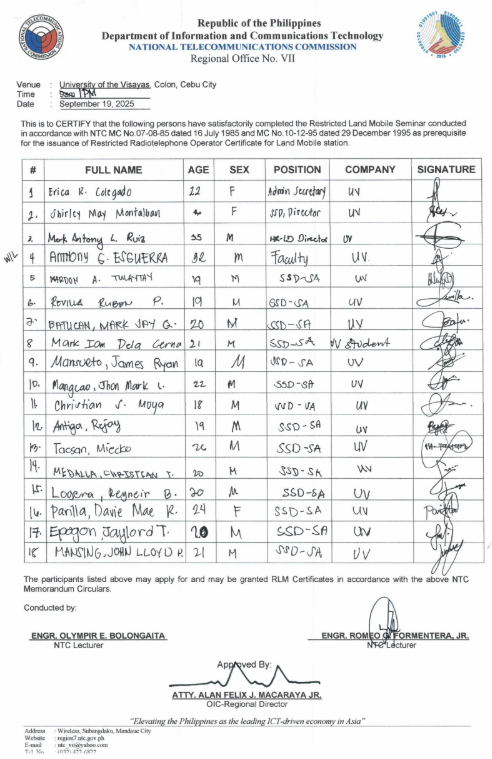 Republic of the Philippines
Department of Information and Communications Technology
NATIONAL TELECOMMUNICATIONS COMMISSION
Regional Office No. VII
Venue : University of the Visayas, Colon, Cebu City
Time : 1PM
Date : September 19, 2025
This is to CERTIFY that the following persons have satisfactorily completed the Restricted Land Mobile Seminar conducted
in accordance with NTC MC No.07-08-85 dated 16 July 1985 and MC No.10-12-95 dated 29 December 1995 as prerequisite
for the issuance of Restricted Radiotelephone Operator Certificate for Land Mobile station.
# FULL NAME AGE SEX POSITION COMPANY SIGNATURE
1 Erica R. Colegado 22 F Admin Secretary UV
2. Shirley May Montalban F SSD, Director UV
3. Mark Antony L. Ruiz 35 M HR-LD Director UV
4 ANTHONY G. ESGUERRA 32 M Faculty UV
5 A. 19 M SSD-SA UV
6. ROVILLA RUBEN P. 19 M SSD-SA UV
7. BATUCAN, MARK JAY G. 20 M SSD-SA UV
8 Mark Ian Dela Cerna 21 M SSD-SA UV student
9. Mansueto, James Ryan 19 M SSD-SA UV
10. Mangcao, Jhon Mark L. 22 M SSD-SA UV
11. Christian S. Moya 18 M SSD-SA UV
12. Antiga, Rejoy 19 M SSD-SA UV
13. Tacsan, Miecko 26 M SSD-SA UV
14. MEDALLA, CHRISTIAN T. 20 M SSD-SA UV
15. Reyneir B. 20 M SSD-SA UV
16. Parilla, Davie Mae R. 24 F SSD-SA UV
17. Epogon Jaylord T. 20 M SSD-SA UV
18 MANSING, JOHN LLOYD P. 21 M SSD-SA UV
The participants listed above may apply for and may be granted RLM Certificates in accordance with the above NTC
Memorandum Circulars.
Conducted by:
ENGR. OLYMPIR E. BOLONGAITA ENGR. ROMEO G. FORMENTERA, JR.
NTC Lecturer NTC Lecturer
Approved By:
ATTY. ALAN FELIX J. MACARAYA JR.
OIC-Regional Director
"Elevating the Philippines as the leading ICT-driven economy in Asia"
Address : Wireless, Subangdaku, Mandaue City
Website : region7.ntc.gov.ph
E-mail : ntc_vii@yahoo.com
Tel. No.